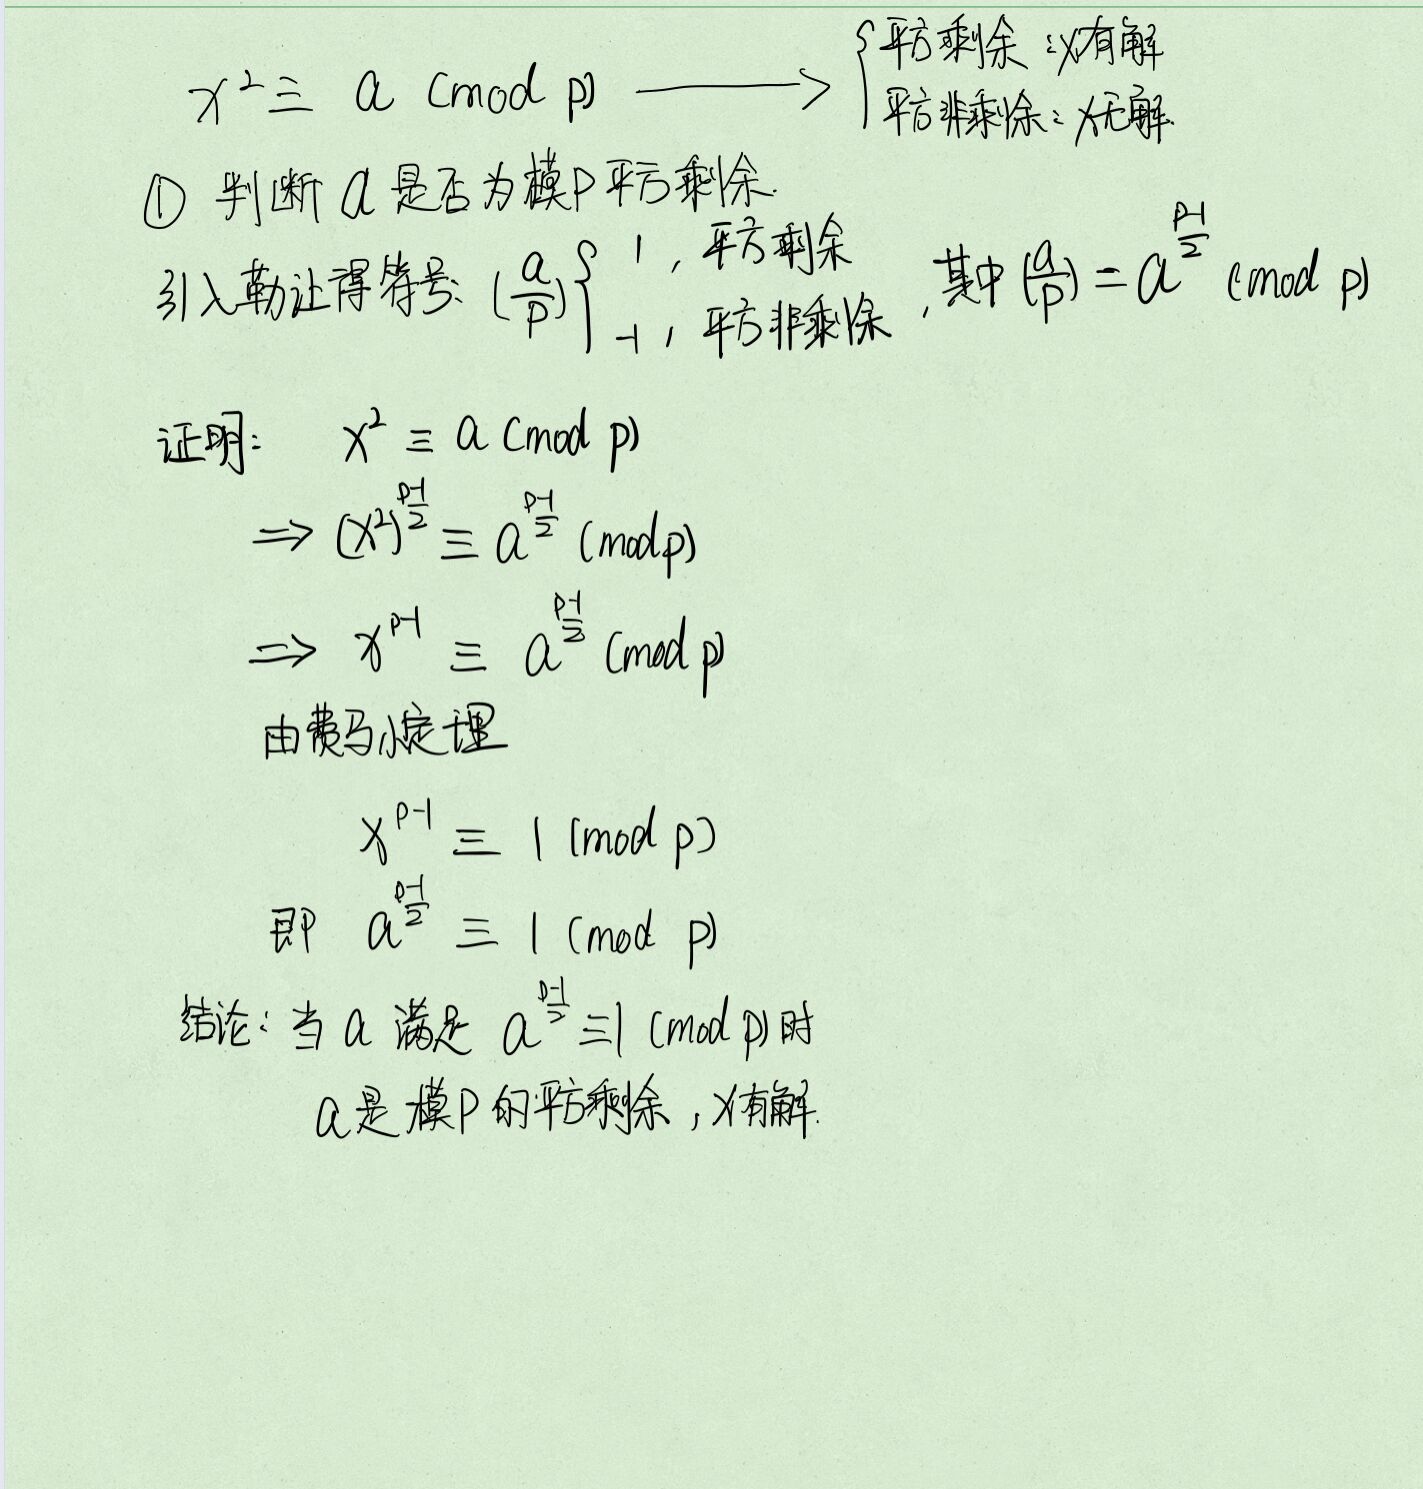 x² ≡ a (mod p) ⟶ { 平方剩余:x有解
平方非剩余:x无解.
① 判断 a 是否为模P平方剩余.
引入勒让得符号: (a/p) { 1, 平方剩余
-1, 平方非剩余 , 其中 (a/p) = a^((p-1)/2) (mod p)
证明: x² ≡ a (mod p)
⇒ (x²)^((p-1)/2) ≡ a^((p-1)/2) (mod p)
⇒ x^(p-1) ≡ a^((p-1)/2) (mod p)
由费马小定理
x^(p-1) ≡ 1 (mod p)
即 a^((p-1)/2) ≡ 1 (mod p)
结论: 当 a 满足 a^((p-1)/2) ≡ 1 (mod p) 时
a是模P的平方剩余, x有解.